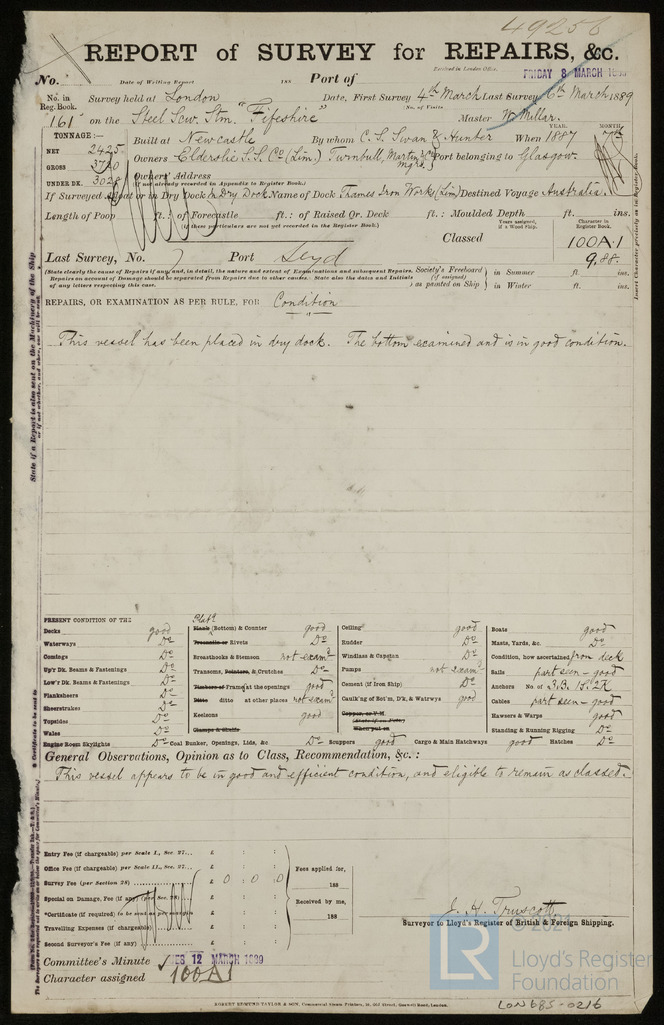 49256
REPORT of SURVEY for REPAIRS, &c.
Received in London Office,
No. Date of Writing Report 188 Port of FRIDAY 8 MARCH
No. in Reg. Book. Survey held at London Date, First Survey 4th March Last Survey 6th March 1889
(No. of Visits
161 on the Steel Scw. Stm. "Fifeshire" Master W. Millar.
TONNAGE:— YEAR. MONTH.
NET 2425 Built at Newcastle By whom C. S. Swan & Hunter When 1887 7th
GROSS 3720 Owners Elderslie S.S. Co (Lim.) Turnbull, Martin & Co Mgrs. Port belonging to Glasgow.
UNDER DK. 3028 Owners' Address
(If not already recorded in Appendix to Register Book.)
If Surveyed Afloat or in Dry Dock In Dry Dock Name of Dock Thames Iron Works (Lim) Destined Voyage Australia.
Length of Poop ft.: of Forecastle ft.: of Raised Qr. Deck ft.: Moulded Depth ft. ins.
(If these particulars are not yet recorded in the Register Book.)
Years assigned, if a Wood Ship.
Character in Register Book.
Classed 100A.1
Last Survey, No. Port 9.88.
(State clearly the cause of Repairs if any; and, in detail, the nature and extent of Examinations and subsequent Repairs. Society's Freeboard in Summer ft. ins.
Repairs on account of Damage should be separated from Repairs due to other causes. State also the dates and Initials (if assigned)
of any letters respecting this case. as painted on Ship in Winter ft. ins.
REPAIRS, OR EXAMINATION AS PER RULE, FOR Condition
This vessel has been placed in dry dock. The bottom examined and is in good condition.
PRESENT CONDITION OF THE
Decks good
Waterways Do
Comings Do
Up'r Dk. Beams & Fastenings Do
Low'r Dk. Beams & Fastenings Do
Planksheers Do
Sheerstrakes Do
Topsides Do
Wales Do
Engine Room Skylights Do
Plate
Plank (Bottom) & Counter good
Treenails or Rivets Do
Breasthooks & Stemson not examd
Transoms, Pointers, & Crutches Do
Timbers or Frames at the openings good
Ditto ditto at other places not examd
Keelsons good
Clamps & Shelfs
Coal Bunker, Openings, Lids, &c Do
Scuppers good
Ceiling good
Rudder Do
Windlass & Capstan Do
Pumps not examd
Cement (if from Ship) Do
Caulking of Bot'm, D'k, & Watrwys good
Copper, or Y.M.
(State if on Felt)
When put on
Cargo & Main Hatchways good
Boats good
Masts, Yards, &c. Do
Condition, how ascertained from deck
Sails part seen - good
Anchors No of 3.B. 1S. 2K
Cables part seen - good
Hawsers & Warps good
Standing & Running Rigging Do
Hatches Do
General Observations, Opinion as to Class, Recommendation, &c.:
This vessel appears to be in good and efficient condition, and eligible to remain as classed.
Entry Fee (if chargeable) per Scale I., Sec. 27... £ : :
Office Fee (if chargeable) per Scale II., Sec. 27... £ : :
Survey Fee (per Section 28) £ 0 : 0 : 0
Special on Damage, Fee (if any) (per Sec. 28) £ : :
*Certificate (if required) to be sent as per margin £ : :
Travelling Expenses (if chargeable) £ : :
Second Surveyor's Fee (if any) £ : :
Fees applied for,
188
Received by me,
188
J. H. Truscott
Surveyor to Lloyd's Register of British & Foreign Shipping.
Committee's Minute TUES 12 MARCH 1889
Character assigned 100A1
© 2021
LR
Lloyd's Register
Foundation
ROBERT EDMUND TAYLOR & SON, Commercial Steam Printers, 19, Old Street, Goswell Road, London.
LON685-0216
State if a Report is also sent on the Machinery of the Ship
or if not, whether, and when one will be sent.
Insert Character precisely as in Register Book.